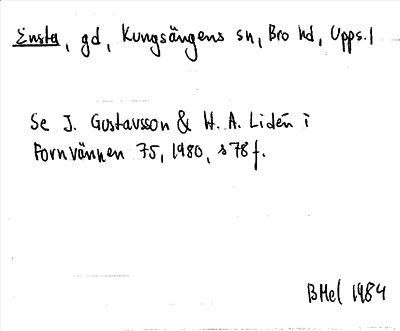 Ensta, gd, Kungsängens sn, Bro hd, Upps. l
Se J. Gustavsson & H. A. Lidén i
Fornvännen 75, 1980, s 78 f.
BHel 1984